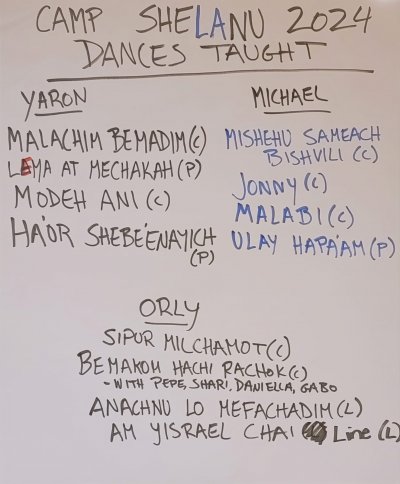 CAMP SHELANU 2024
DANCES TAUGHT
YARON
MALACHIM BEMADIM (C)
LEMA AT MECHAKAH (P)
MODEH ANI (C)
HA'OR SHEBE'ENAYICH
(P)
MICHAEL
MISHEHU SAMEACH
BISHVILI (C)
JONNY (C)
MALABI (C)
ULAY HAPA'AM (P)
ORLY
SIPUR MILCHAMOT (C)
BEMAKOM HACHI RACHOK (C)
- WITH PEPE, SHARI, DANIELLA, GABO
ANACHNU LO MEFACHADIM (L)
AM YISRAEL CHAI Line (L)